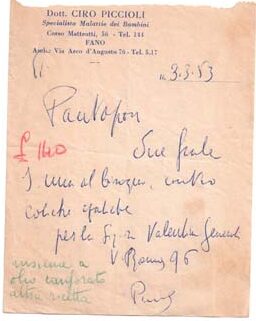 Dott. CIRO PICCIOLI
Specialista Malattie dei Bambini
Corso Matteotti, 56 - Tel. 144
FANO
Amb.: Via Arco d'Augusto 76 - Tel. 5.17
li 3-3-53
Pantopon
£ 140
Due fiale
S. una al bisogno, contro
coliche epatiche
per la Sig.ra Valentia
V. Roma 96
insieme a
olio canforato
altra ricetta